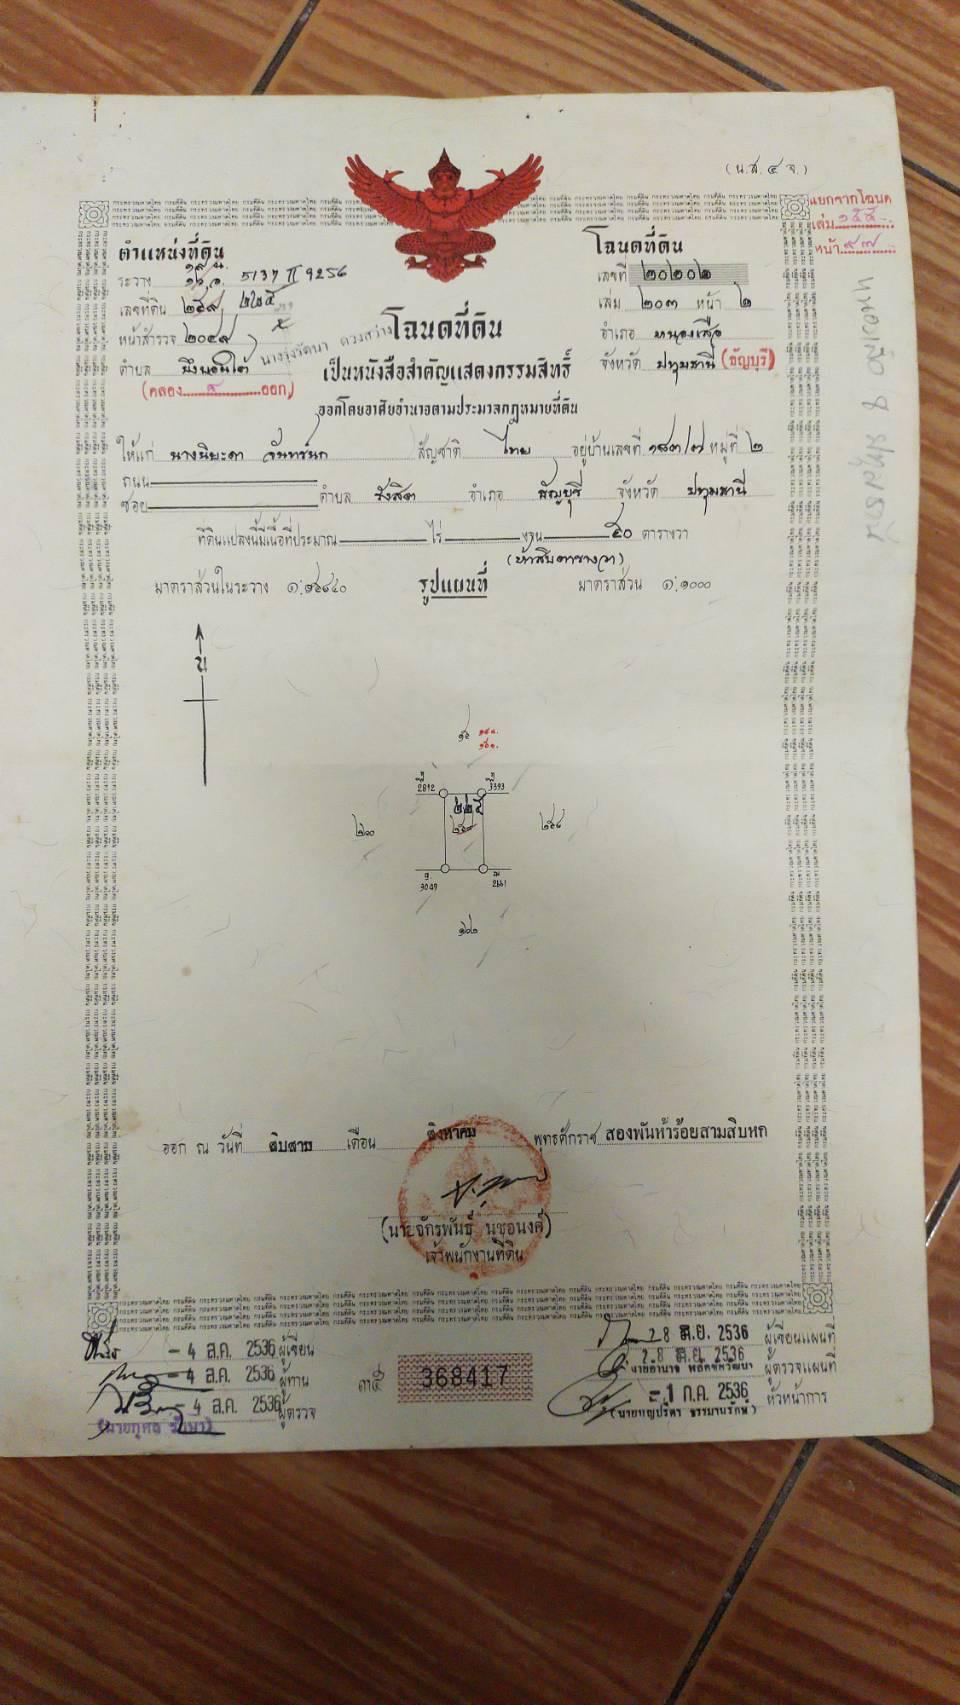 (น.ส.๔ จ.)
แยกจากโฉนด
เล่ม
หน้า ๙๗
ตำแหน่งที่ดิน
ระวาง 5137 II 9256
เลขที่ดิน ๒๕๙ ๒๒๕
หน้าสำรวจ ๒๐๔๙
ตำบล บึงบอนใต้
(คลอง ๘ ออก)
โฉนดที่ดิน
เลขที่ ๒๐๒๐๒
เล่ม ๒๐๓ หน้า ๒
อำเภอ หนองเสือ
จังหวัด ปทุมธานี (ธัญบุรี)
โฉนดที่ดิน
เป็นหนังสือสำคัญแสดงกรรมสิทธิ์
ออกโดยอาศัยอำนาจตามประมวลกฎหมายที่ดิน
ให้แก่ จันทร์นก สัญชาติ ไทย อยู่บ้านเลขที่ ๑๘๓/๗ หมู่ที่ ๒
ถนน
ซอย ตำบล รังสิต อำเภอ ธัญบุรี จังหวัด ปทุมธานี
ที่ดินแปลงนี้มีเนื้อที่ประมาณ ไร่ งาน ๕๐ ตารางวา
(ห้าสิบตารางวา)
มาตราส่วนในระวาง รูปแผนที่ มาตราส่วน ๑:๑๐๐๐
น
2812 3393
๒๒๕
๒๖๐ ๒๕๙ ๒๕๘
3049 2661
๑๐๒
ออก ณ วันที่ สิบสาม เดือน สิงหาคม พุทธศักราช สองพันห้าร้อยสามสิบหก
(นายจักรพันธุ์ นุชอนงค์)
เจ้าพนักงานที่ดิน
- 4 ส.ค. 2536 ผู้เขียน
- 4 ส.ค. 2536 ผู้ทาน
- 4 ส.ค. 2536 ผู้ตรวจ
368417
28 มิ.ย. 2536 ผู้เขียนแผนที่
28 มิ.ย. 2536 ผู้ตรวจแผนที่
- 1 ก.ค. 2536 หัวหน้าการ